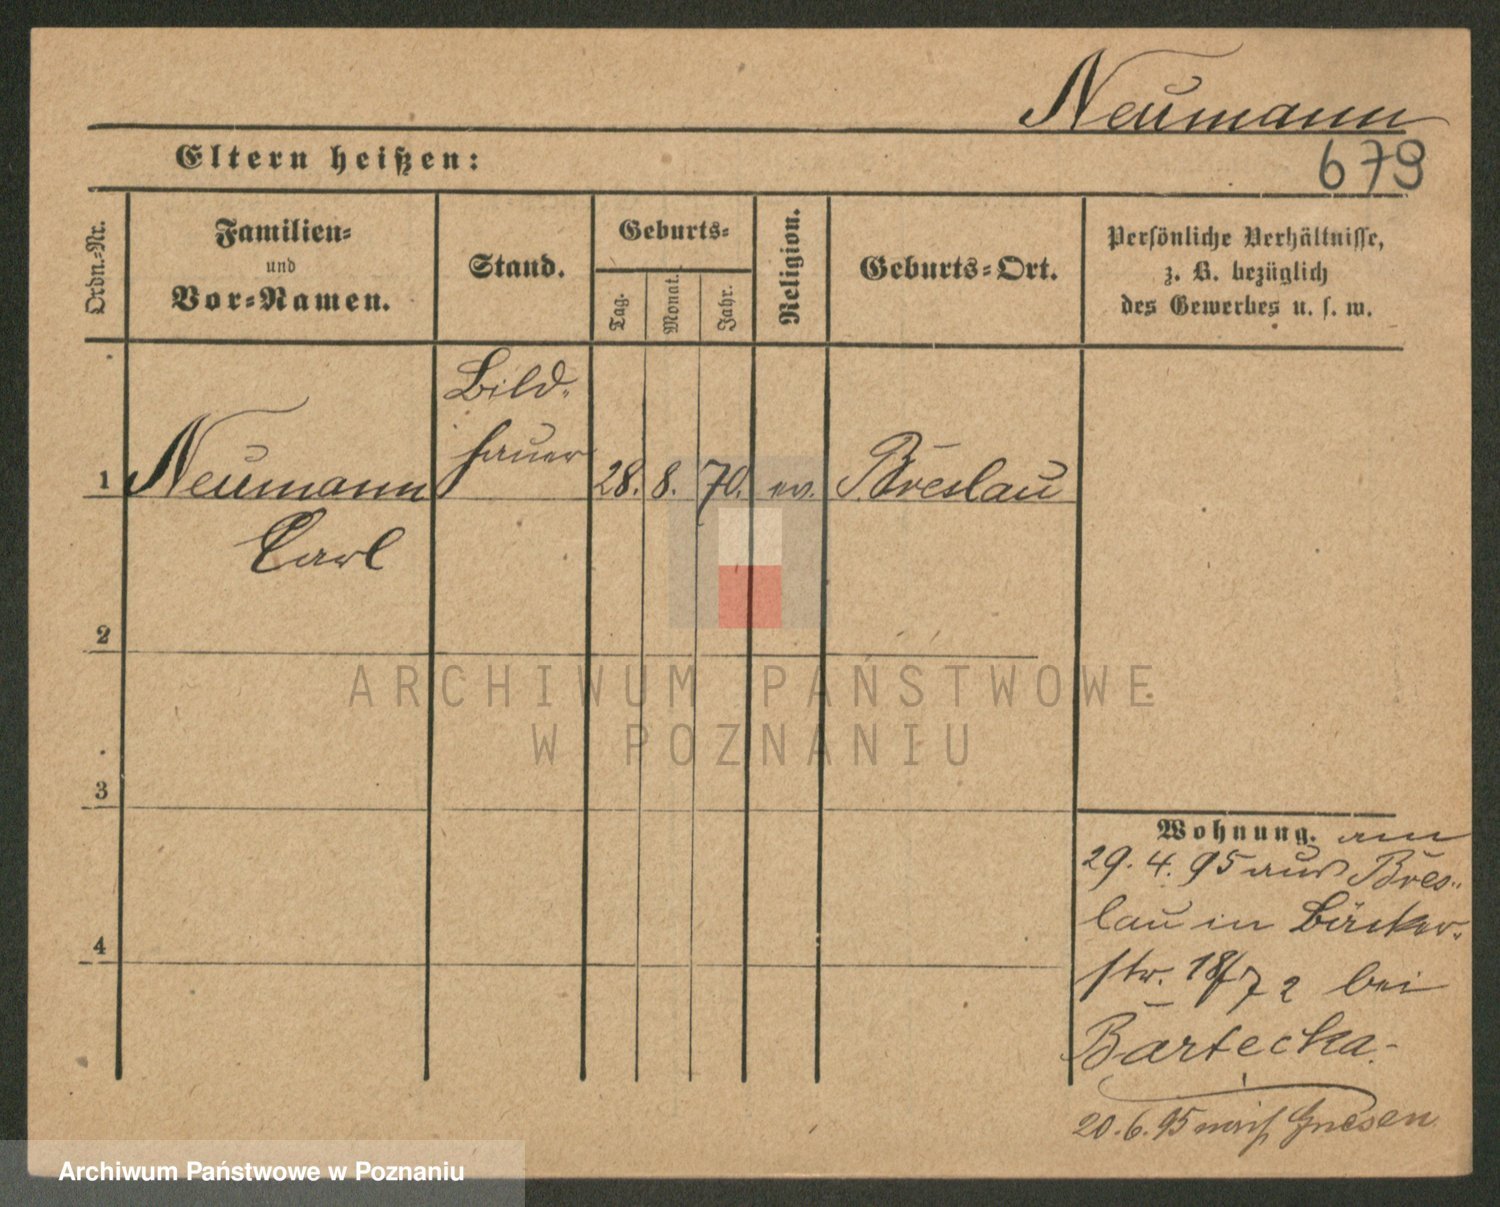 Neumann
679
Eltern heißen:
Ordn.-Nr.
Familien-
und
Vor-Namen.
Stand.
Geburts-
Tag.
Monat.
Jahr.
Religion.
Geburts-Ort.
Persönliche Verhältnisse,
z. B. bezüglich
des Gewerbes u. s. w.
Bild-
hauer
1 Neumann 28. 8. 70. ev. Breslau
Carl
2
3
4
ARCHIWUM PAŃSTWOWE
W POZNANIU
Wohnung. am
29. 4. 95 aus Bres-
lau in Bäcker-
str. 18/72 bei
Bartecka.
20. 6. 95 nach Gnesen
Archiwum Państwowe w Poznaniu